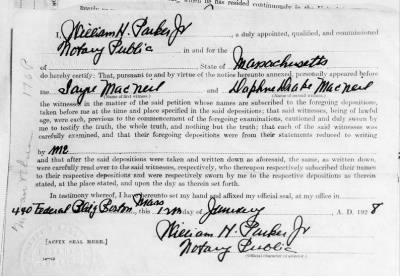 has resided continuously in the
I, William H. Parker Jr, a duly appointed, qualified, and commissioned
Notary Public in and for the
of State of Massachusetts
do hereby certify: That, pursuant to and by virtue of the notice hereunto annexed, personally appeared before
me Jayne MacNeil and Daphne Drake MacNeil
(Name of first witness.) (Name of second witness.)
the witnesses in the matter of the said petition whose names are subscribed to the foregoing depositions,
taken before me at the time and place specified in the said depositions; that said witnesses, being of lawful
age, were each, previous to the commencement of the foregoing examinations, cautioned and duly sworn by
me to testify the truth, the whole truth, and nothing but the truth; that each of the said witnesses was
carefully examined, and that their foregoing depositions were from their statements reduced to writing
by me
and that after the said depositions were taken and written down as aforesaid, the same, as written down,
were carefully read over to the said witnesses, respectively, who thereupon respectively subscribed their names
to their respective depositions and were respectively sworn by me to the respective depositions as therein
stated, at the place stated, and upon the day as therein set forth.
In testimony whereof, I have hereunto set my hand and affixed my official seal, at my office in
440 Federal Bldg Boston Mass, this day of January, A. D. 1928
William H. Parker Jr
Notary Public
[AFFIX SEAL HERE.]